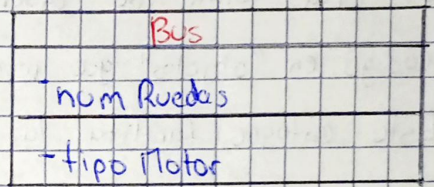 Bus
- num Ruedas
- tipo Motor